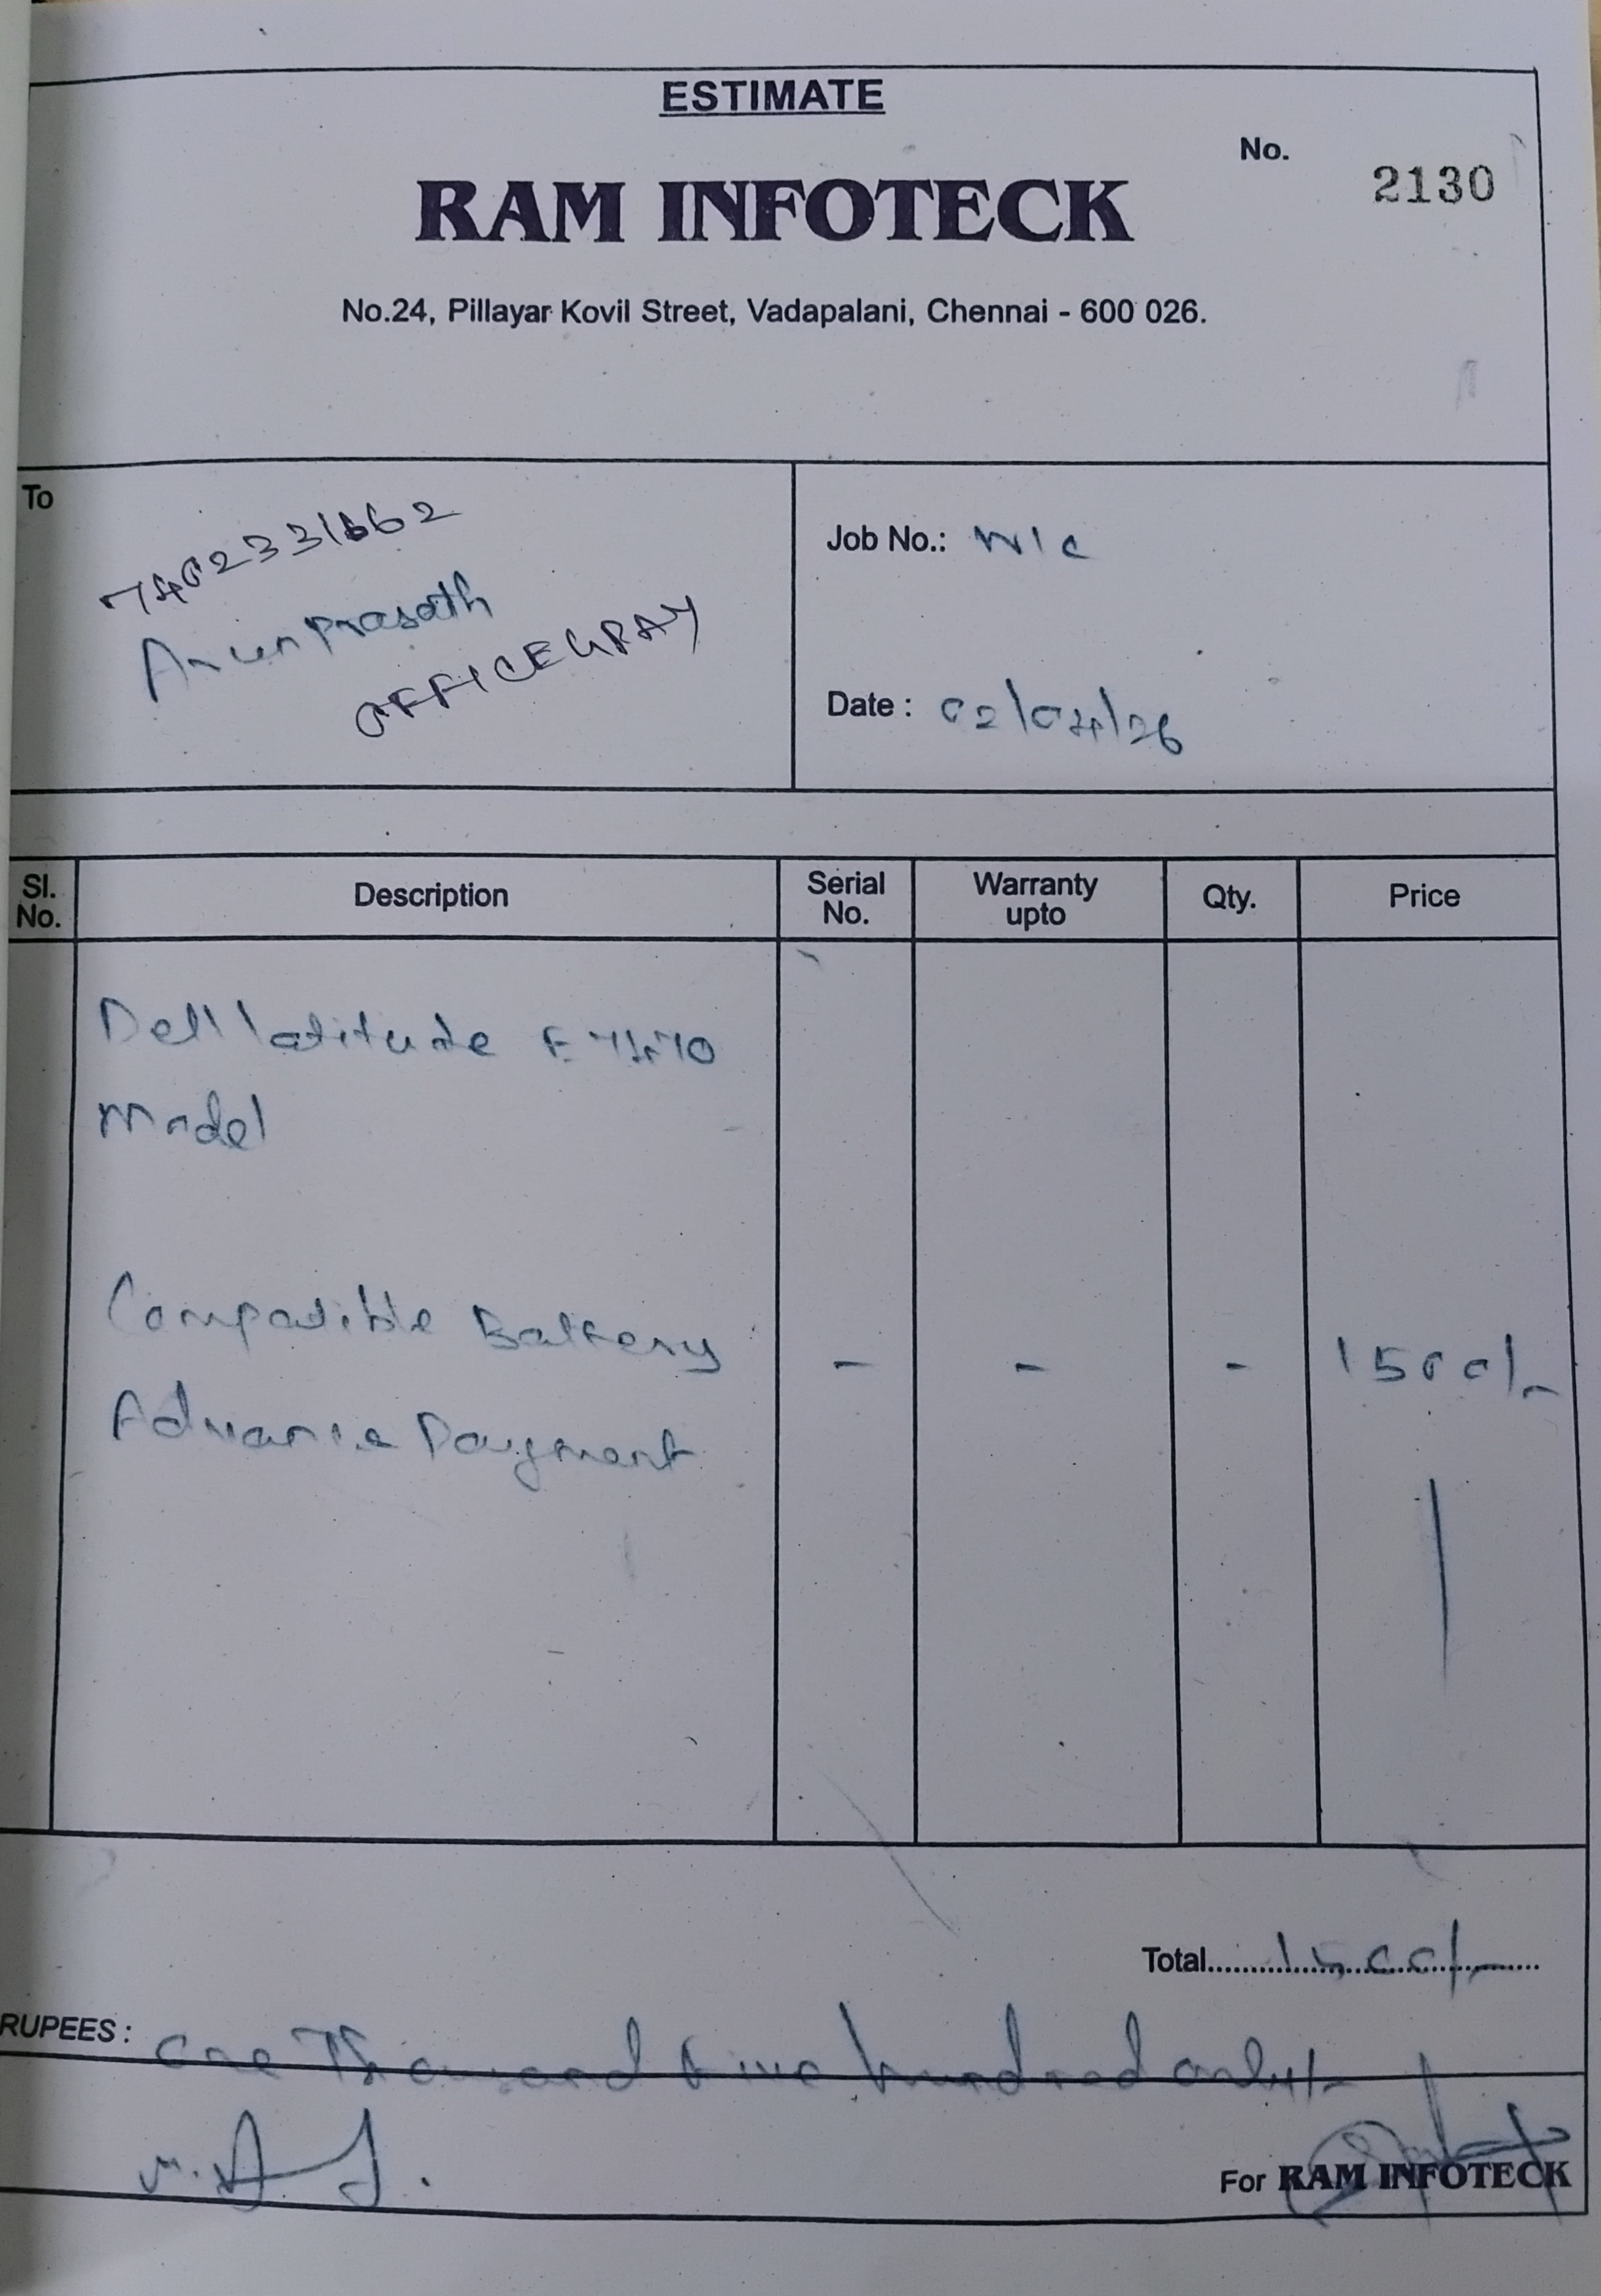 ESTIMATE
No. 2130
RAM INFOTECK
No.24, Pillayar Kovil Street, Vadapalani, Chennai - 600 026.
To
Arun Prasath
OFFICEGRAY
Job No.: W/C
Date : 02/04/26
Sl. No. Description Serial No. Warranty upto Qty. Price
Dell latitude
Model
Compatible Battery - - - 1500/-
Advance Payment
Total 1500/-
RUPEES : One Thousand five hundred only/-
For RAM INFOTECK